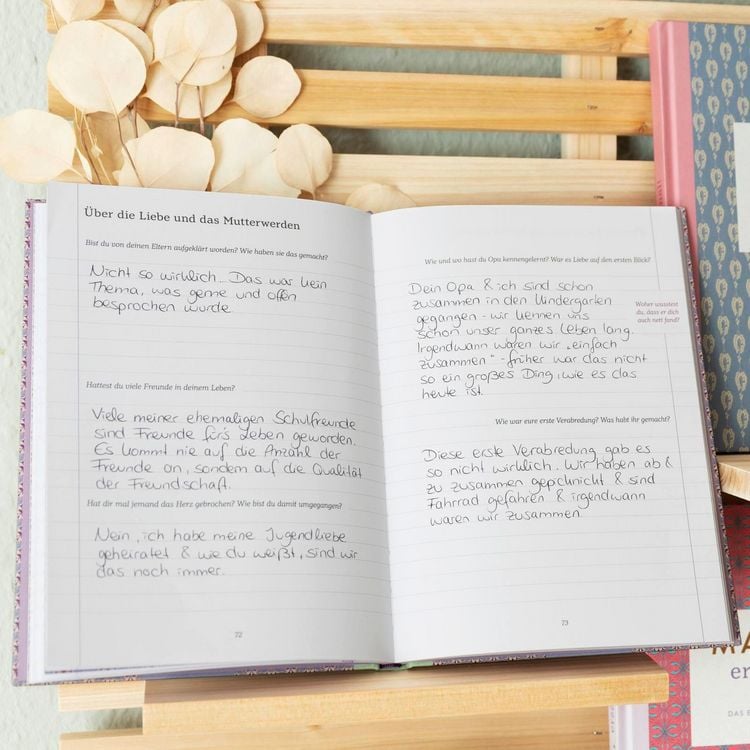 Über die Liebe und das Mutterwerden
Bist du von deinen Eltern aufgeklärt worden? Wie haben sie das gemacht?
Nicht so wirklich... Das war kein
Thema, was gerne und offen
besprochen wurde.
Hattest du viele Freunde in deinem Leben?
Viele meiner ehemaligen Schulfreunde
sind Freunde für's Leben geworden.
Es kommt nie auf die Anzahl der
Freunde an, sondern auf die Qualität
der Freundschaft.
Hat dir mal jemand das Herz gebrochen? Wie bist du damit umgegangen?
Nein, ich habe meine Jugendliebe
geheiratet & wie du weißt, sind wir
das noch immer.
72
Wie und wo hast du Opa kennengelernt? War es Liebe auf den ersten Blick?
Dein Opa & ich sind schon
zusammen in den Kindergarten
gegangen - wir kennen uns
schon unser ganzes Leben lang.
Irgendwann waren wir „einfach
zusammen" - früher war das nicht
so ein großes Ding, wie es das
heute ist.
Woher wusstest
du, dass er dich
auch nett fand?
Wie war eure erste Verabredung? Was habt ihr gemacht?
Diese erste Verabredung gab es
so nicht wirklich. Wir haben ab &
zu zusammen gepicknickt & sind
Fahrrad gefahren & irgendwann
waren wir zusammen.
73
MA
er
DAS